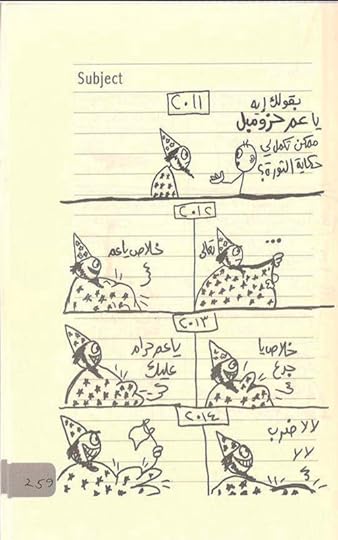 Subject
٢٠١١
بقولك إيه
يا عم حزومبل
ممكن تكملي
حكاية الثورة؟
٢٠١٢
...
تعالى
خلاص يا عم
٢٠١٣
خلاص يا
جدع
يا عم حرام
عليك
٢٠١٤
لا لا ضرب
لا لا
259